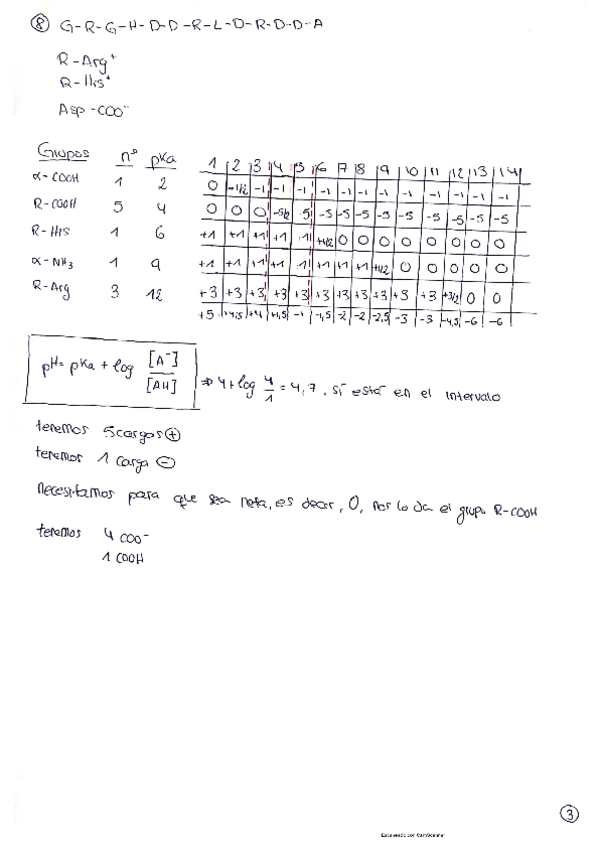 ⑧ G-R-G-H-D-D-R-L-D-R-D-D-A
R-Arg⁺
R-His⁺
Asp-COO⁻
Grupos nº pKa 1 2 3 4 5 6 7 8 9 10 11 12 13 14
α-COOH 1 2 0 -1/2 -1 -1 -1 -1 -1 -1 -1 -1 -1 -1 -1 -1
R-COOH 5 4 0 0 0 -5/2 -5 -5 -5 -5 -5 -5 -5 -5 -5 -5
R-His 1 6 +1 +1 +1 +1 +1 +1/2 0 0 0 0 0 0 0 0
α-NH₃ 1 9 +1 +1 +1 +1 +1 +1 +1 +1 +1/2 0 0 0 0 0
R-Arg 3 12 +3 +3 +3 +3 +3 +3 +3 +3 +3 +3 +3 +3/2 0 0
+5 +4,5 +4 +1,5 -1 -1,5 -2 -2 -2,5 -3 -3 -4,5 -6 -6
pH = pKa + log [A⁻]/[AH] ⇒ 4 + log 4/1 = 4,7. Sí está en el intervalo
tenemos 5 cargas ⊕
tenemos 1 carga ⊖
Necesitamos para que sea neta, es decir, 0, nos lo da el grupo R-COOH
tenemos 4 COO⁻
1 COOH
③
Escaneado con CamScanner